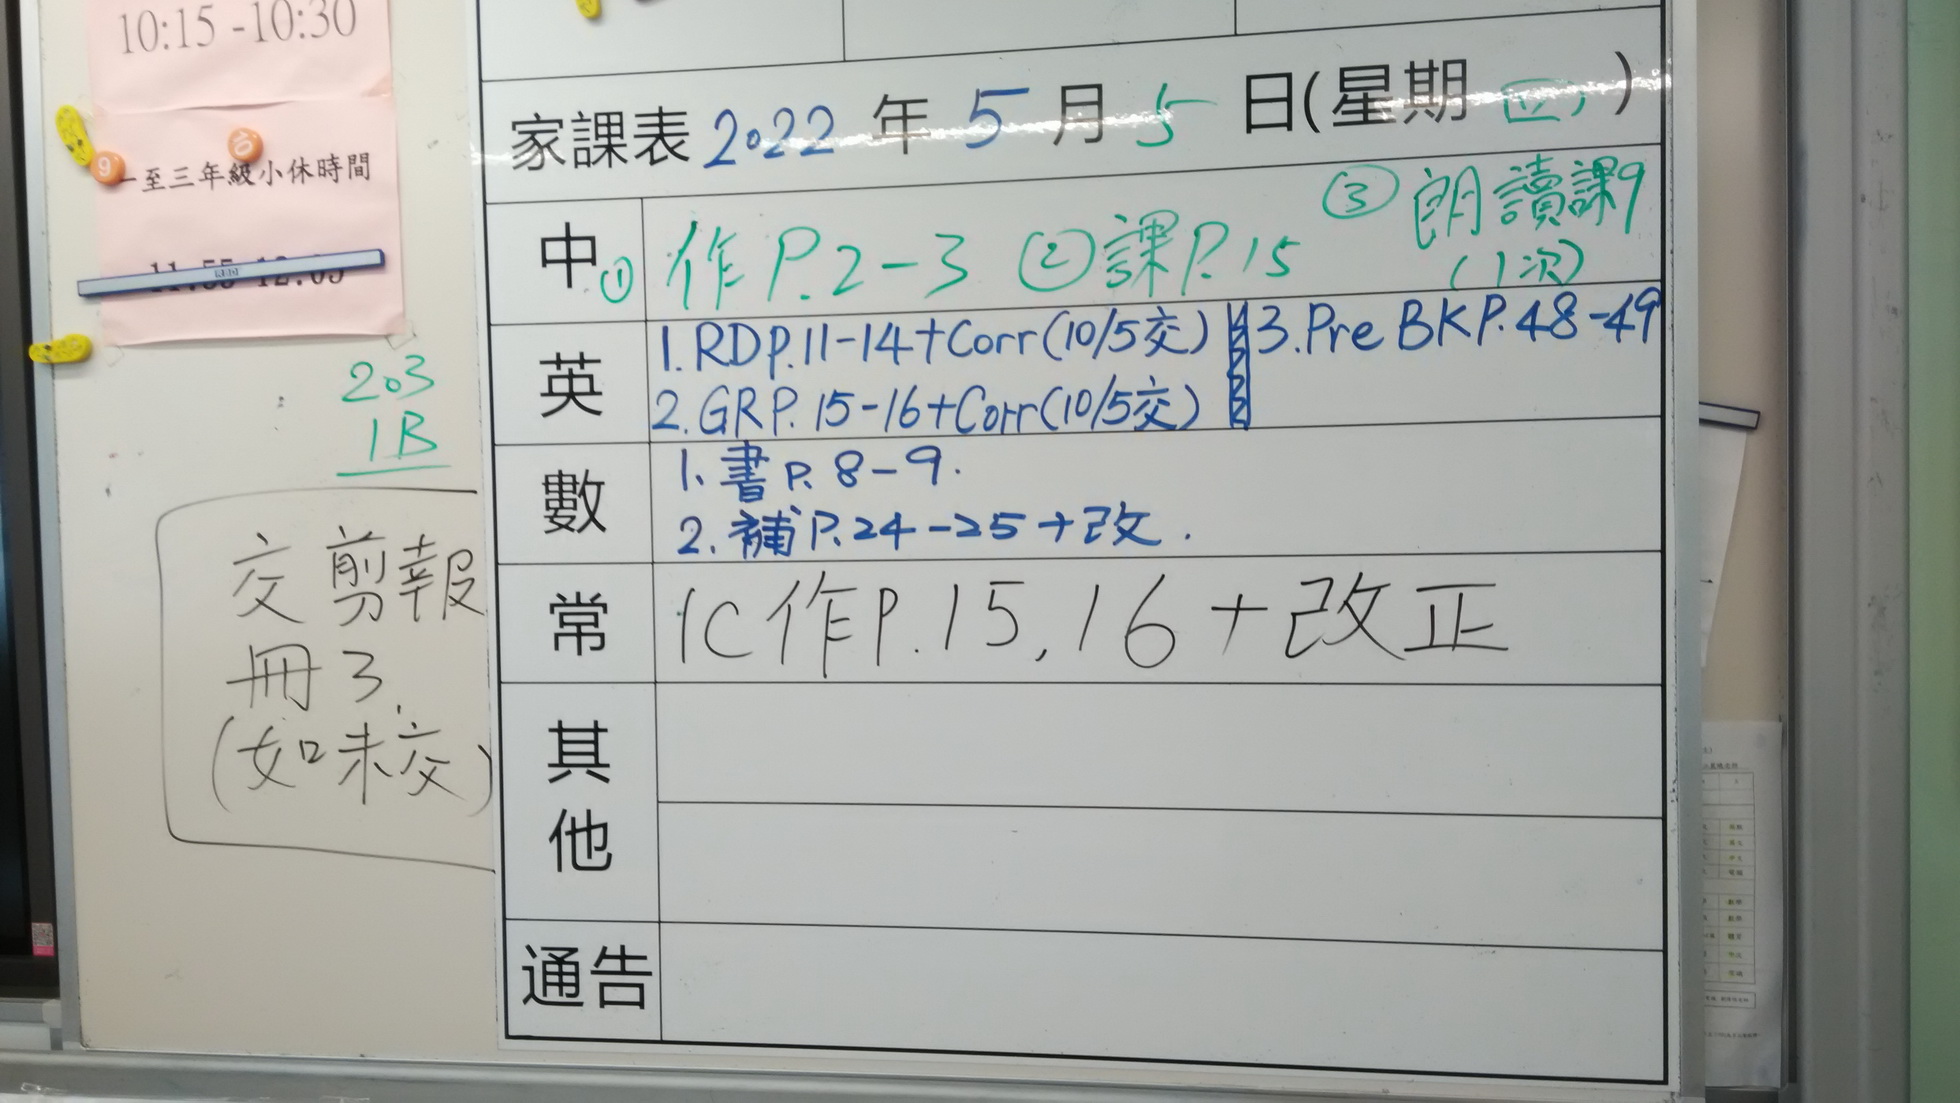 10:15 -10:30
一至三年級小休時間
203
1B
交剪報
冊了.
(如未交)
家課表 2022 年 5 月 5 日(星期 四)
中 ① 作P.2-3 ②課P.15 ③ 朗讀課9
(1次)
英 1.RDP.11-14+Corr(10/5交) 3.Pre BKP.48-49
2.GRP.15-16+Corr(10/5交)
數 1. 書P. 8-9.
2. 補P.24-25+改.
常 1C作P.15,16+改正
其他
通告